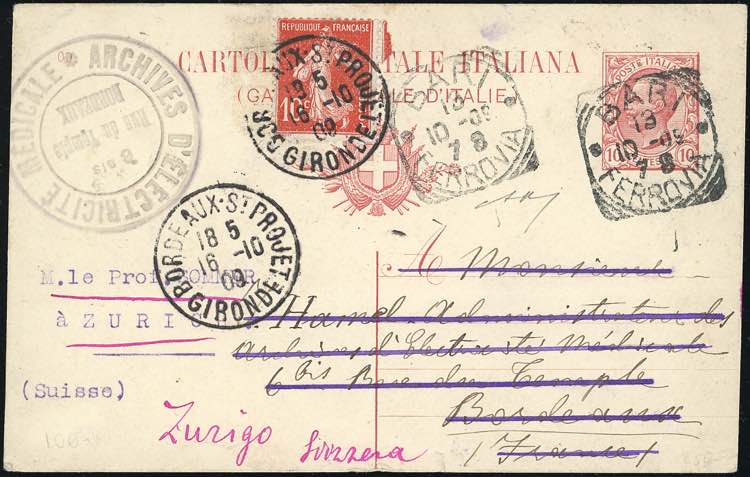 CARTOLINA POSTALE ITALIANA
(CARTE POSTALE D'ITALIE)
ARCHIVES D'ÉLECTRICITÉ MÉDICALE
6 bis
Rue du Temple
BORDEAUX
REPUBLIQUE FRANÇAISE
10c
BORDEAUX-ST PROJET
18 5
16 -10
09
GIRONDE
BARI
13
10 -09
7 8
FERROVIA
POSTE ITALIANE
10 10
BARI
13
10 -09
7 8
FERROVIA
BORDEAUX-ST PROJET
18 5
16 -10
09
GIRONDE
M.le Prof SOMMER
à ZURIC
(Suisse)
A Monsieur
Hamel-Administrateur des
Archives d'Electricité Médicale
6 bis Rue du Temple
Bordeaux
(France)
Zurigo Svizzera